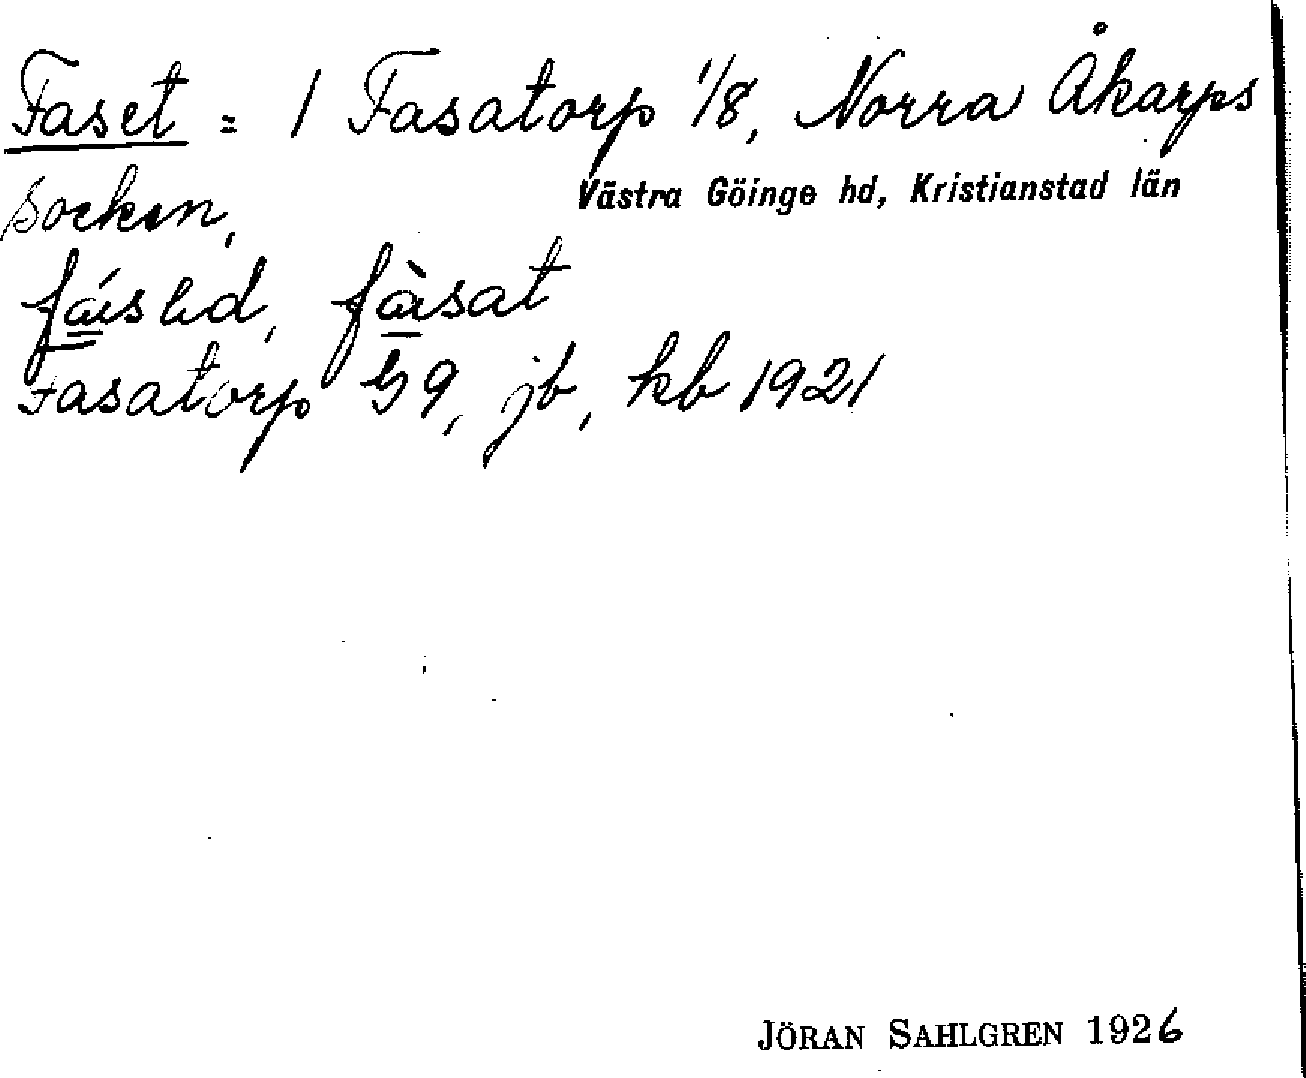 Faset = 1 Fasatorp 1/8, Norra Åkarps
socken, Västra Göinge hd, Kristianstad län
fàsat
Fasatorp G9, jb, kb 1921
JÖRAN SAHLGREN 1926